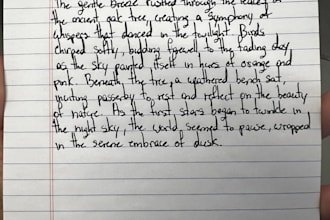 The gentle breeze rustled through the leaves of
the ancient oak tree, creating a symphony of
whispers that danced in the twilight. Birds
chirped softly, bidding farewell to the fading day,
as the sky painted itself in hues of orange and
pink. Beneath the tree, a weathered bench sat,
inviting passerby to rest and reflect on the beauty
of nature. As the first stars began to twinkle in
the night sky, the world seemed to pause, wrapped
in the serene embrace of dusk.